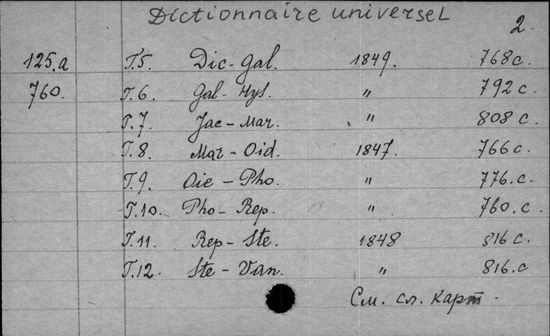 Dictionnaire universel
2.
125.a Т.5. Dic-Gal. 1849. 768 с.
760. Т.6. Gal-Hys. " 792 с.
Т.7. Jac-Mar. " 808 с.
Т.8. Mar-Oid. 1847. 766 с.
Т.9. Oie-Pho. " 776.с.
Т.10. Pho-Rep. " 760.с.
Т.11. Rep-Ste. 1848 816 с.
Т.12. Ste-Van. " 816.с
См. сл. карт